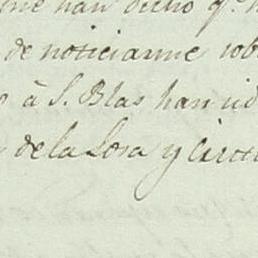 me han dicho q.e
de noticiarme sob
à S. Blas han sid
de la Losa y